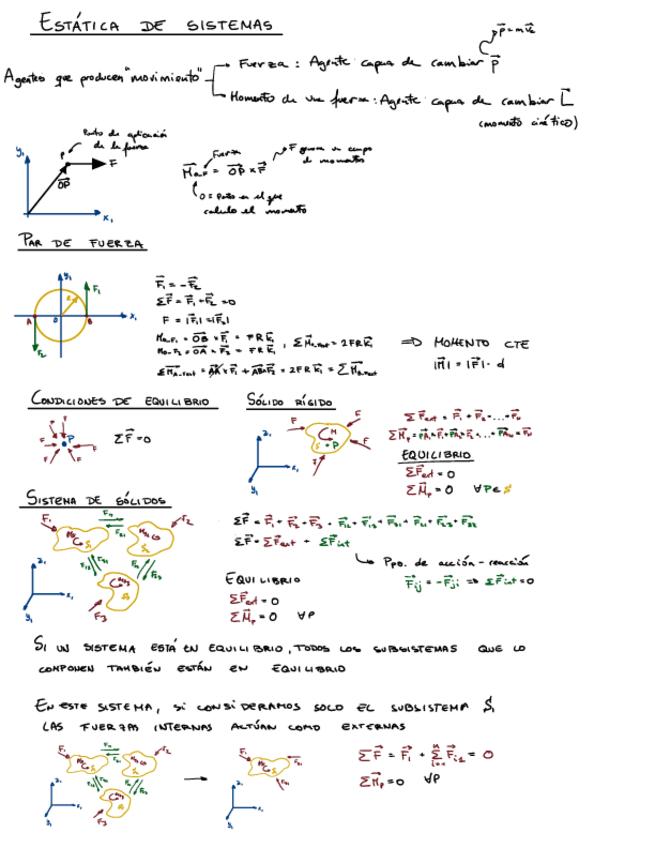 ESTÁTICA DE SISTEMAS
p⃗ = m v⃗
Agentes que producen "movimiento"
Fuerza : Agente capaz de cambiar p⃗
Momento de una fuerza : Agente capaz de cambiar L⃗
(momento cinético)
Punto de aplicación
de la fuerza
y₁
P
F
OP⃗
x₁
Fuerza
F genera un campo
de momentos
M⃗ₒ,F = OP⃗ × F⃗
O = Punto en el que
calculo el momento
PAR DE FUERZA
y₁
F₁
R
A
O
B
x₁
F₂
F⃗₁ = -F⃗₂
ΣF⃗ = F⃗₁ + F⃗₂ = 0
F = |F⃗₁| = |F⃗₂|
⇒ MOMENTO CTE
|M⃗| = |F⃗| · d
CONDICIONES DE EQUILIBRIO
F
P
ΣF⃗ = 0
SÓLIDO RÍGIDO
z₁
x₁
y₁
F
M
S
P
ΣF⃗ext = F⃗₁ + F⃗₂ + ... + F⃗ₙ
EQUILIBRIO
ΣF⃗ext = 0
ΣM⃗p = 0 ∀P ∈ S
SISTEMA DE SÓLIDOS
F₁
F₂
F₃
z₁
x₁
y₁
ΣF⃗ = ΣF⃗ext + ΣF⃗int
Ppo. de acción - reacción
F⃗ij = -F⃗ji ⇒ ΣF⃗int = 0
EQUILIBRIO
ΣF⃗ext = 0
ΣM⃗p = 0 ∀P
SI UN SISTEMA ESTÁ EN EQUILIBRIO, TODOS LOS SUBSISTEMAS QUE LO
COMPONEN TAMBIÉN ESTÁN EN EQUILIBRIO
EN ESTE SISTEMA, SI CONSIDERAMOS SOLO EL SUBSISTEMA S₁
LAS FUERZAS INTERNAS ACTÚAN COMO EXTERNAS
F₁
F₂
F₃
z₁
x₁
y₁
F₁
z₁
x₁
y₁
ΣM⃗p = 0 ∀P